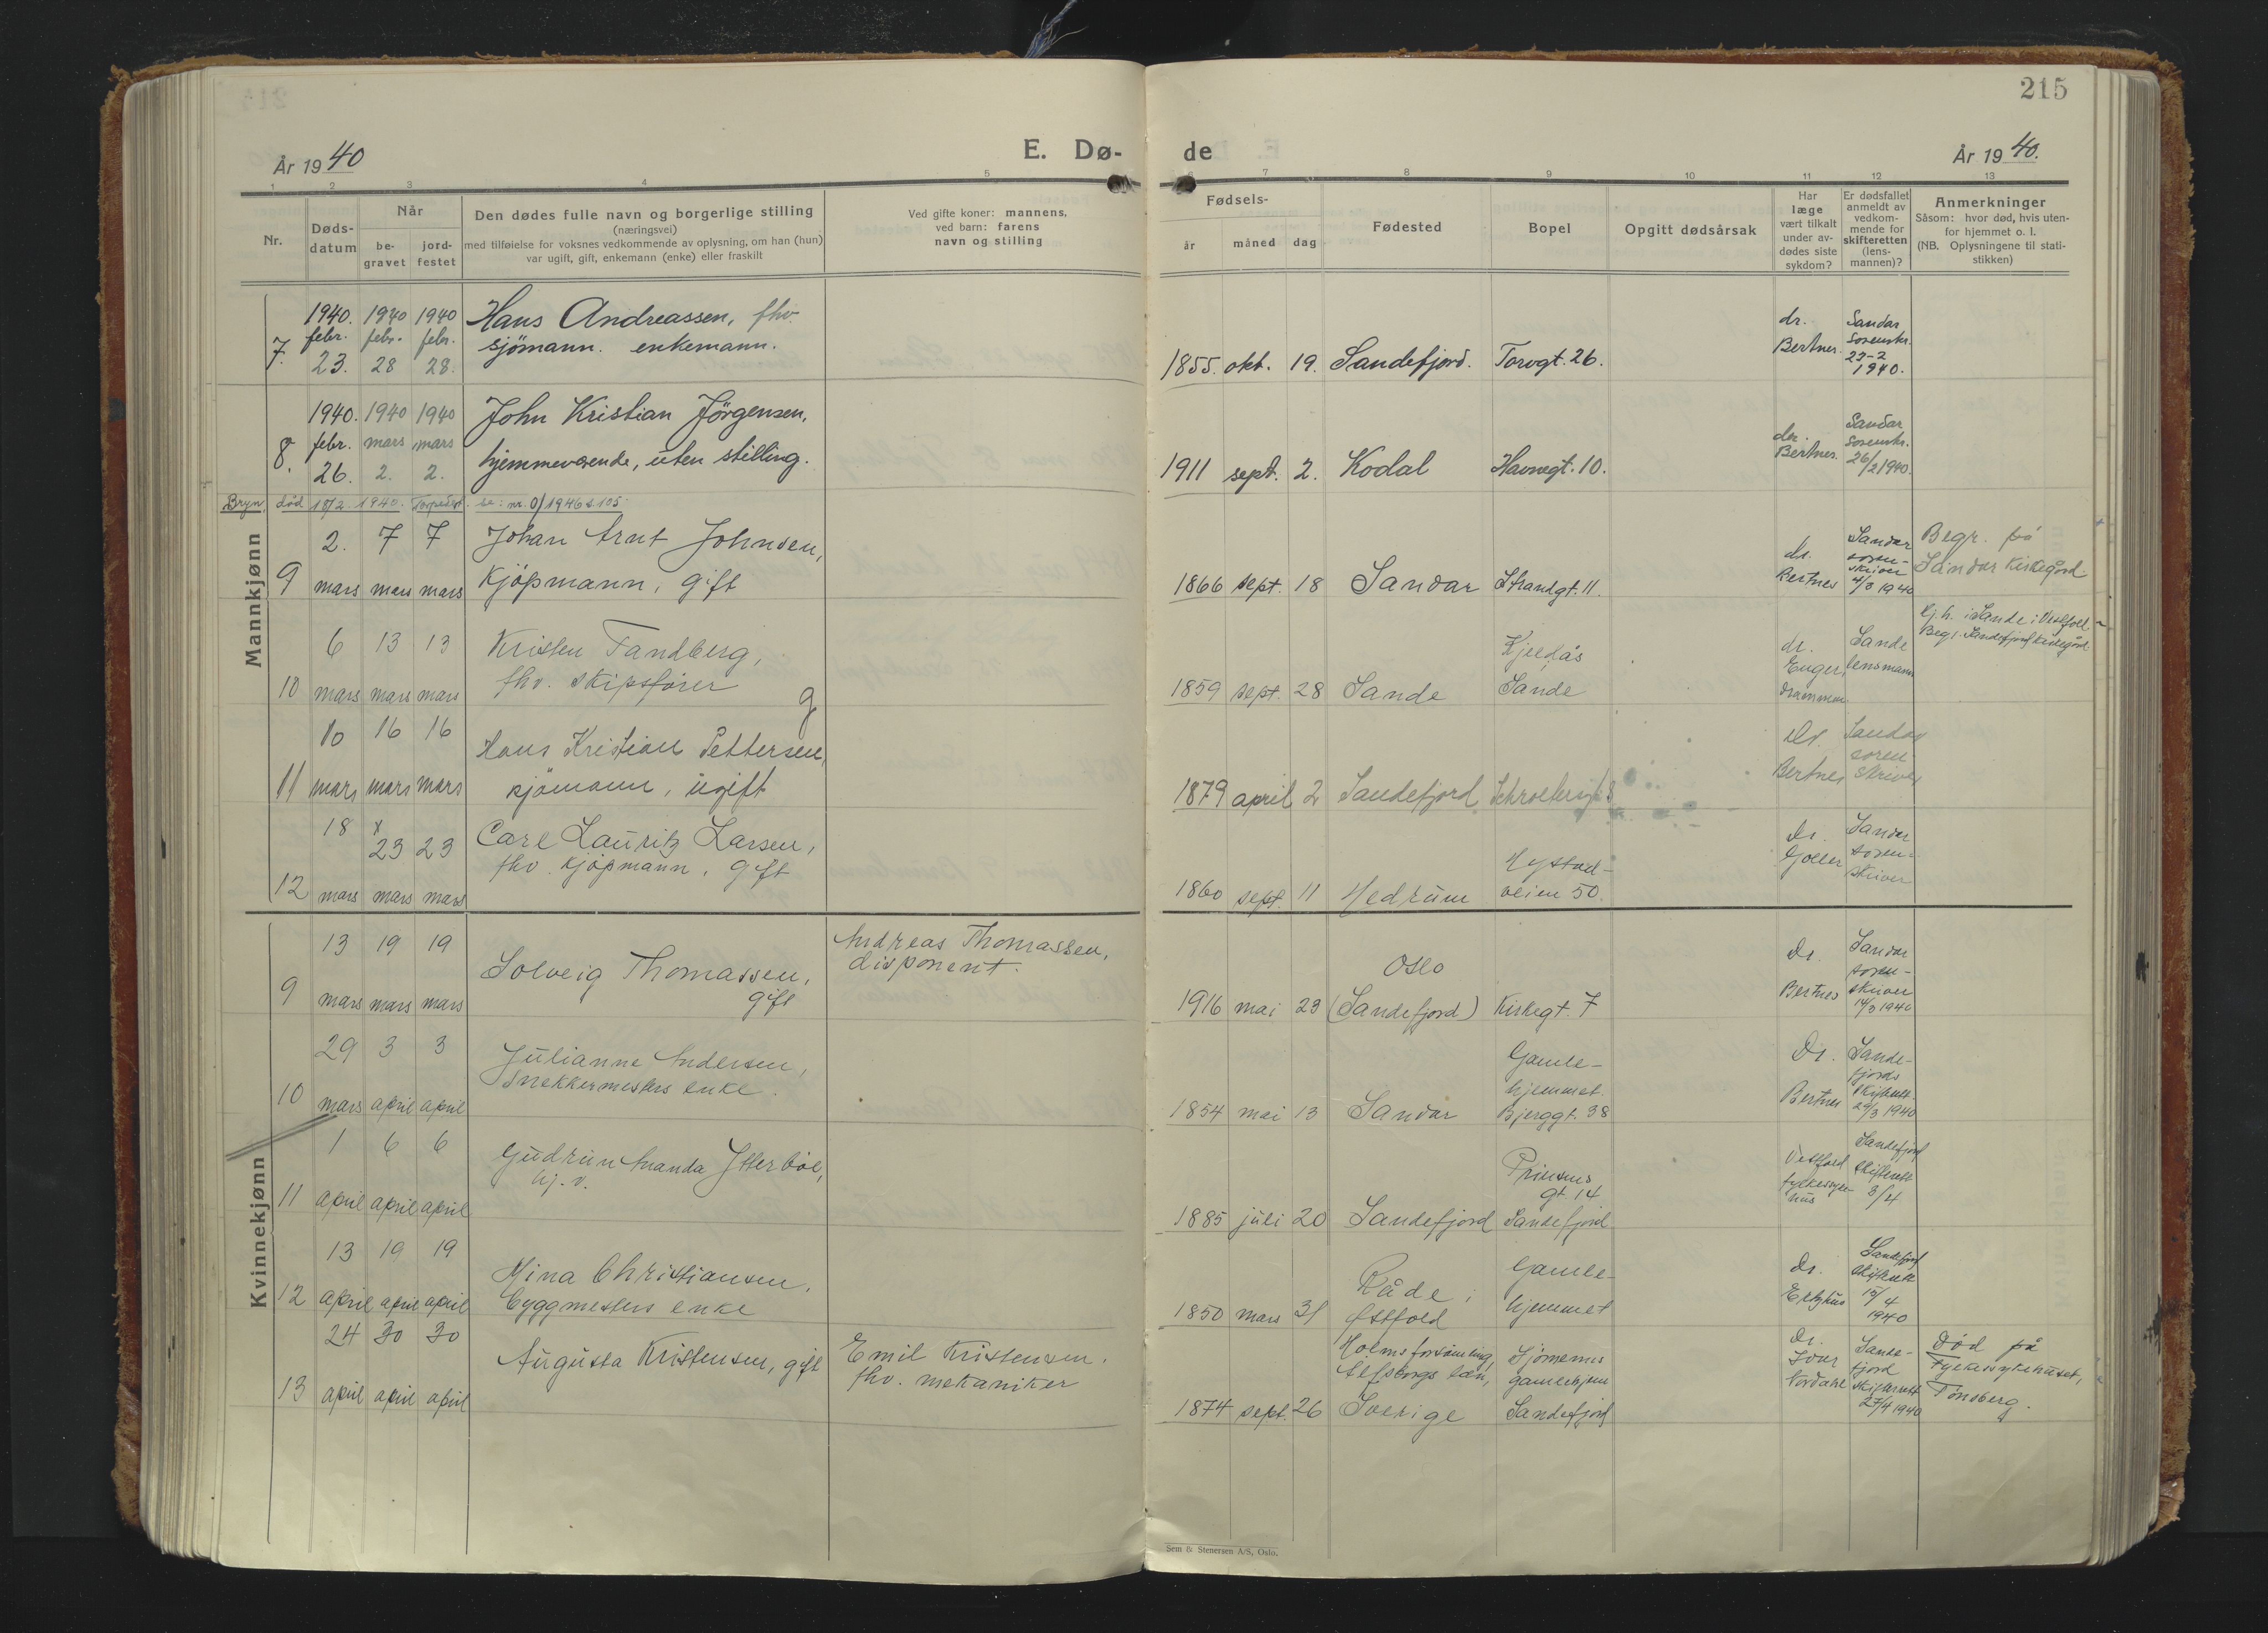 215
År 1940
E. Dø-
de
År 1940.
1 2 3 4 5
6 7 8 9 10 11 12 13
Nr.
Døds-
datum
Når
be-
gravet
jord-
festet
Den dødes fulle navn og borgerlige stilling
(næringsvei)
med tilføielse for voksnes vedkommende av oplysning, om han (hun)
var ugift, gift, enkemann (enke) eller fraskilt
Ved gifte koner: mannens,
ved barn: farens
navn og stilling
Fødsels-
år måned dag
Fødested
Bopel
Opgitt dødsårsak
Har
læge
vært tilkalt
under av-
dødes siste
sykdom?
Er dødsfallet
anmeldt av
vedkom-
mende for
skifteretten
(lens-
mannen)?
Anmerkninger
Såsom: hvor død, hvis uten-
for hjemmet o. l.
(NB. Oplysningene til stati-
stikken)
Mannkjønn
7.
1940. febr. 23.
1940 febr. 28
1940 febr. 28.
Hans Andreassen, fhv.
sjømann. enkemann.
1855. okt. 19. Sandefjord. Torvgt. 26.
dr.
Bertnes.
Sandar
Sorenskr.
23-2
1940.
8.
1940. febr. 26.
1940 mars 2.
1940 mars 2.
John Kristian Jörgensen,
hjemmeværende, uten stilling.
1911 sept. 2. Kodal Havnegt. 10.
dr.
Bertnes.
Sandar
Sorenskr.
26/2 1940.
Bryn, død 18/2. 1940. Torpedert. se: nr. 0/1946 s. 105.
9
2. mars
7 mars
7 mars
Johan Arnt Johnsen,
Kjöpmann, gift
1866 sept. 18 Sandar Strandgt. 11.
dr.
Bertnes
Sandar
soren-
skriver
4/3 1940
Begr. på
Sandar Kirkegård.
10
6 mars
13 mars
13 mars
Kristen Tandberg,
fhv. skipsfører
g
1859 sept. 28 Sande
Kjeldås
Sande
dr.
Enger,
Drammen
Sande
lensmann
i Sande i Vestfold
Begr. Sandefjord Kirkegård.
11
10 mars
16 mars
16 mars
Hans Kristian Pettersen,
sjømann, ugift
1879 april 2 Sandefjord
Dr.
Bertnes
Sandar
soren
skriver
12
18 mars
x
23 mars
23 mars
Carl Lauritz Larsen,
fhv. kjöpmann, gift
1860 sept. 11 Hedrum
Hystad-
veien 50.
dr.
Gjøller
Sandar
soren-
skriver
Kvinnekjønn
9
13 mars
19 mars
19 mars
Solveig Thomassen,
gift
Andreas Thomassen,
disponent.
1916 mai 23
Oslo
(Sandefjord) Kirkegt. 7
Dr.
Bertnes
Sandar
soren-
skriver
14/3 1940
10
29 mars
3 april
3 april
Julianne Andersen,
snekkermesters enke.
1854 mai 13 Sandar
Gamle-
hjemmet.
Bjerggt. 38
Dr.
Bertnes
Sande-
fjords
skifterett
29/3 1940
11
1 april
6 april
6 april
Gudrun Amanda Ytterbøe,
hj. v.
1885 juli 20 Sandefjord
Prinsens
gt. 14
Sandefjord
Vestfold
fylkessyke-
hus
Sandefjord
skifterett
3/4
12
13 april
19 april
19 april
Mina Christiansen,
byggmesters enke
1850 mars 31
Råde i
Østfold
Gamle-
hjemmet
dr.
Sandefjord
skifterett
15/4
1940
13
24 april
30 april
30 april
Augusta Kristensen, gift
Emil Kristensen,
fhv. mekaniker
1874 sept. 26
Holms forsamling,
Elfsborgs län,
Sverige
Sjømennes
gamlehjem
Sandefjord
Dr.
Ivar
Nordahl
Sande-
fjord
skifterett
27/4 1940
Død på
Fylkessykehuset,
Tønsberg.
Sem & Stenersen A/S, Oslo.